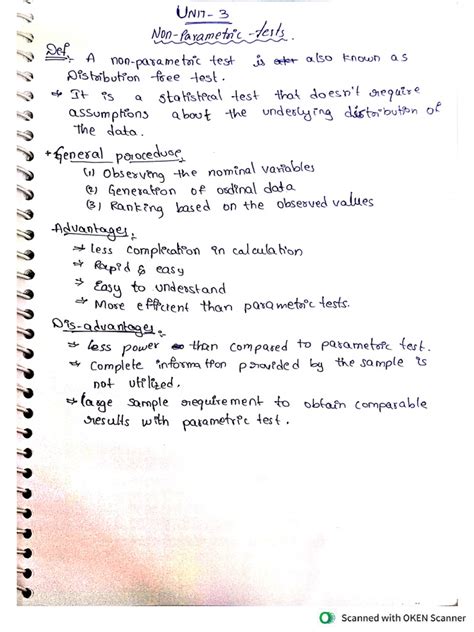 UNIT - 3
Non-Parametric -tests.
Def:- A non-parametric test is also known as
Distribution free test.
→ It is a statistical test that doesn't require
assumptions about the underlying distribution of
the data.
+ General poroceduse,
(1) Observing the nominal variables
(2) Generation of ordinal data
(3) Ranking based on the observed values
Advantages:
→ less complication in calculation
→ Rapid & easy
→ Easy to understand
→ More efficient than parametric tests.
Dis-advantages:-
→ less power than compared to parametric test.
→ Complete information provided by the sample is
not utilized.
→ large sample requirement to obtain comparable
results with parametric test.
Scanned with OKEN Scanner